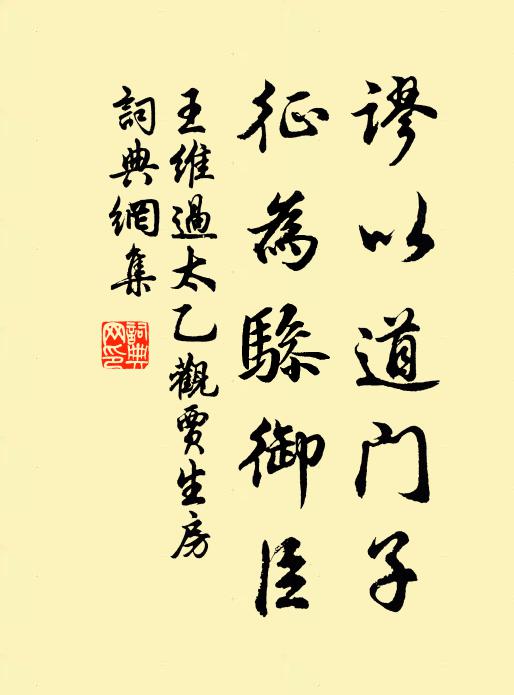 谬以道门子
征為驂御臣
王維過太乙觀賈生房
詞典網集
詞典網印